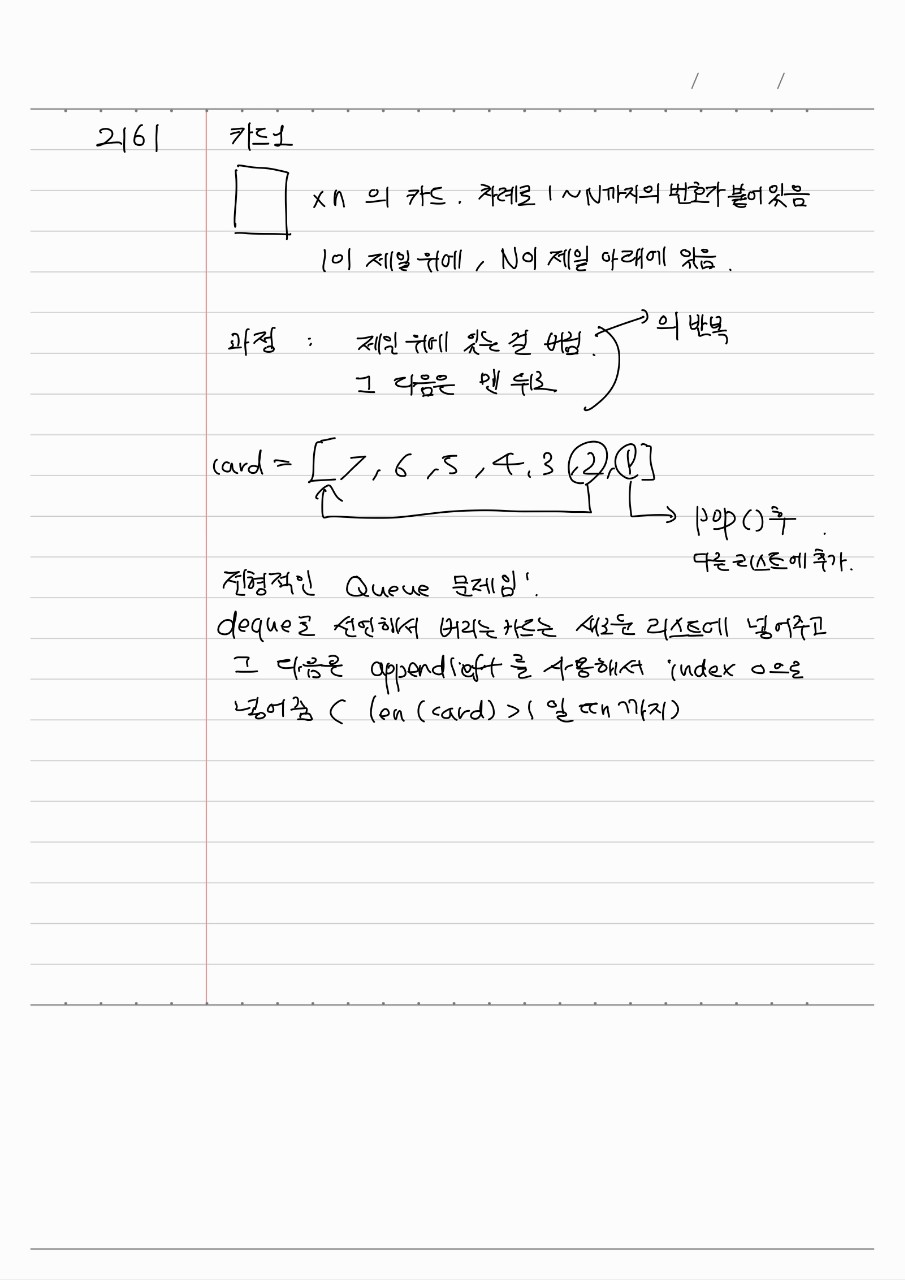 / /
2161 카드1
xn 의 카드. 차례로 1~N까지의 번호가 붙어있음
1이 제일 위에, N이 제일 아래에 있음.
과정 : 제일 위에 있는 걸 버림. 의 반복
그 다음은 맨 뒤로
card = [7, 6, 5, 4, 3, 2, 1]
pop() 후
다음 리스트에 추가.
전형적인 Queue 문제임!
deque로 선언해서 버리는 카드는 새로운 리스트에 넣어주고
그 다음은 appendleft를 사용해서 index 0으로
넣어줌 ( len(card) > 1 일 때까지)